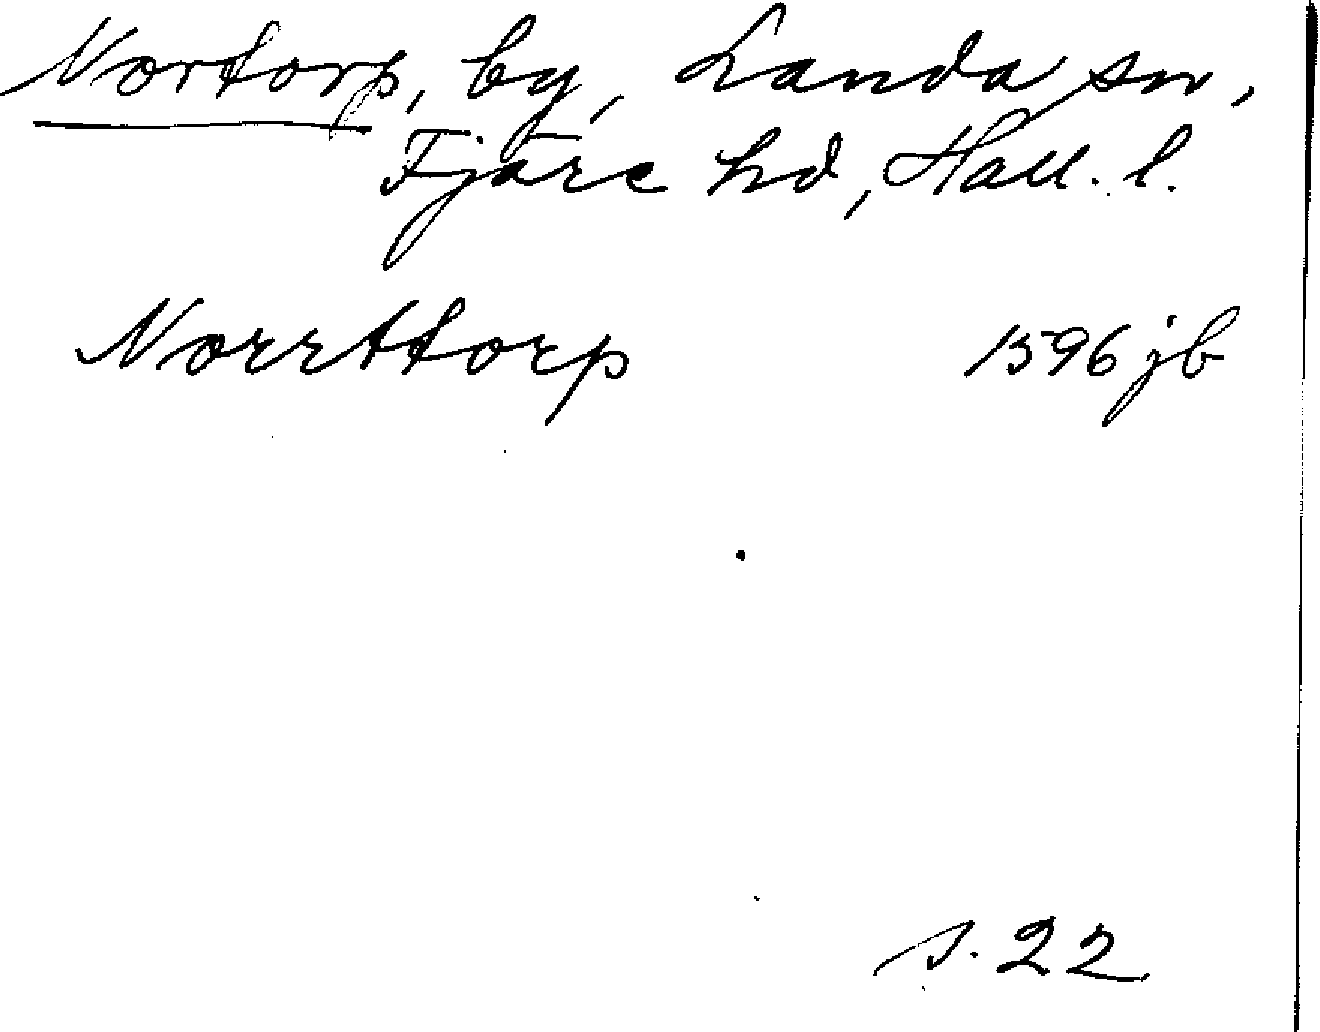 Nortorp, by, Landa sn,
Fjäre hd, Hall. l.
Norrttorp 1596 jb
s. 22